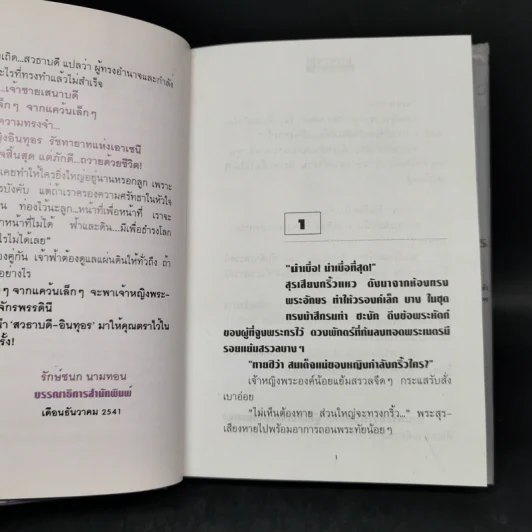 เถิด...สวธาบดี แปลว่า ผู้ทรงอำนาจและกำลัง
ะไรที่ทรงทำแล้วไม่สำเร็จ
...เจ้าชายเสนาบดี
ล็กๆ จากแคว้นเล็กๆ
ความทรงจำ...
งอินทุอร รัชทายาทแห่งเอาเชนี
จสิ้นสุด แต่ภักดี...ถวายด้วยชีวิต!
เคยทำให้ใครยิ่งใหญ่อยู่นานหรอกลูก เพราะ
รบังคับ แต่ถ้าเราครองความศรัทธาในหัวใจ
น ท่องไว้นะลูก...หน้าที่เพื่อหน้าที่ เราจะ
าหน้าที่ไม่ได้ ฟ้าและดิน...มีเพื่อธำรงโลก
ไรไม่ได้เลย"
องคู่กัน เจ้าฟ้าต้องดูแลผ่นดินให้ทั่วถึง ถ้า
อย่างไร
ๆ จากแคว้นเล็กๆ จะพาเจ้าหญิงพระ-
จักรพรรดินี
ำ 'สวธาบดี-อินทุอร' มาให้คุณตราไว้ใน
รั้ง!
รักษ์ชนก นามทอน
บรรณาธิการสำนักพิมพ์
เดือนธันวาคม 2541
1
"น่าเบื่อ! น่าเบื่อที่สุด!"
สุรเสียงกริ้วแหว ดังมาจากห้องทรง
พระอักษร ทำให้วรองค์เล็ก บาง ในชุด
ทรงผ้าสีกรมท่า ชะงัก ดึงข้อพระหัตถ์
ของผู้ที่จูงพระกรไว้ ดวงพักตร์ที่ก้มลงทอดพระเนตรมี
รอยแย้มสรวลบางๆ
"ทายซิว่า สมเด็จแม่ของหญิงกำลังกริ้วใคร?"
เจ้าหญิงพระองค์น้อยแย้มสรวลจืดๆ กระแสรับสั่ง
เบาอ่อย
"ไม่เห็นต้องทาย ส่วนใหญ่จะทรงกริ้ว..." พระสุร-
เสียงหายไปพร้อมอาการถอนพระทัยน้อยๆ
1